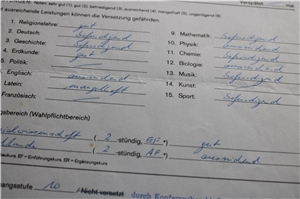 sehr gut (1), gut (2), befriedigend (3), ausreichend (4), mangelhaft (5), ungenügend (6)
ausreichende Leistungen können die Versetzung gefährden.
1. Religionslehre: gut
2. Deutsch: befriedigend
3. Geschichte: befriedigend
4. Erdkunde: gut
5. Politik:
Englisch: ausreichend
Latein: mangelhaft
Französisch:
9. Mathematik: befriedigend
10. Physik: ausreichend
11. Chemie: befriedigend
12. Biologie: ausreichend
13. Musik: befriedigend
14. Kunst: befriedigend
15. Sport: befriedigend
bereich (Wahlpflichtbereich)
( 2 -stündig, EF *) gut
( 2 -stündig, AF *) ausreichend
EF = Einführungskurs, ER = Ergänzungskurs
10 / Nicht versetzt durch